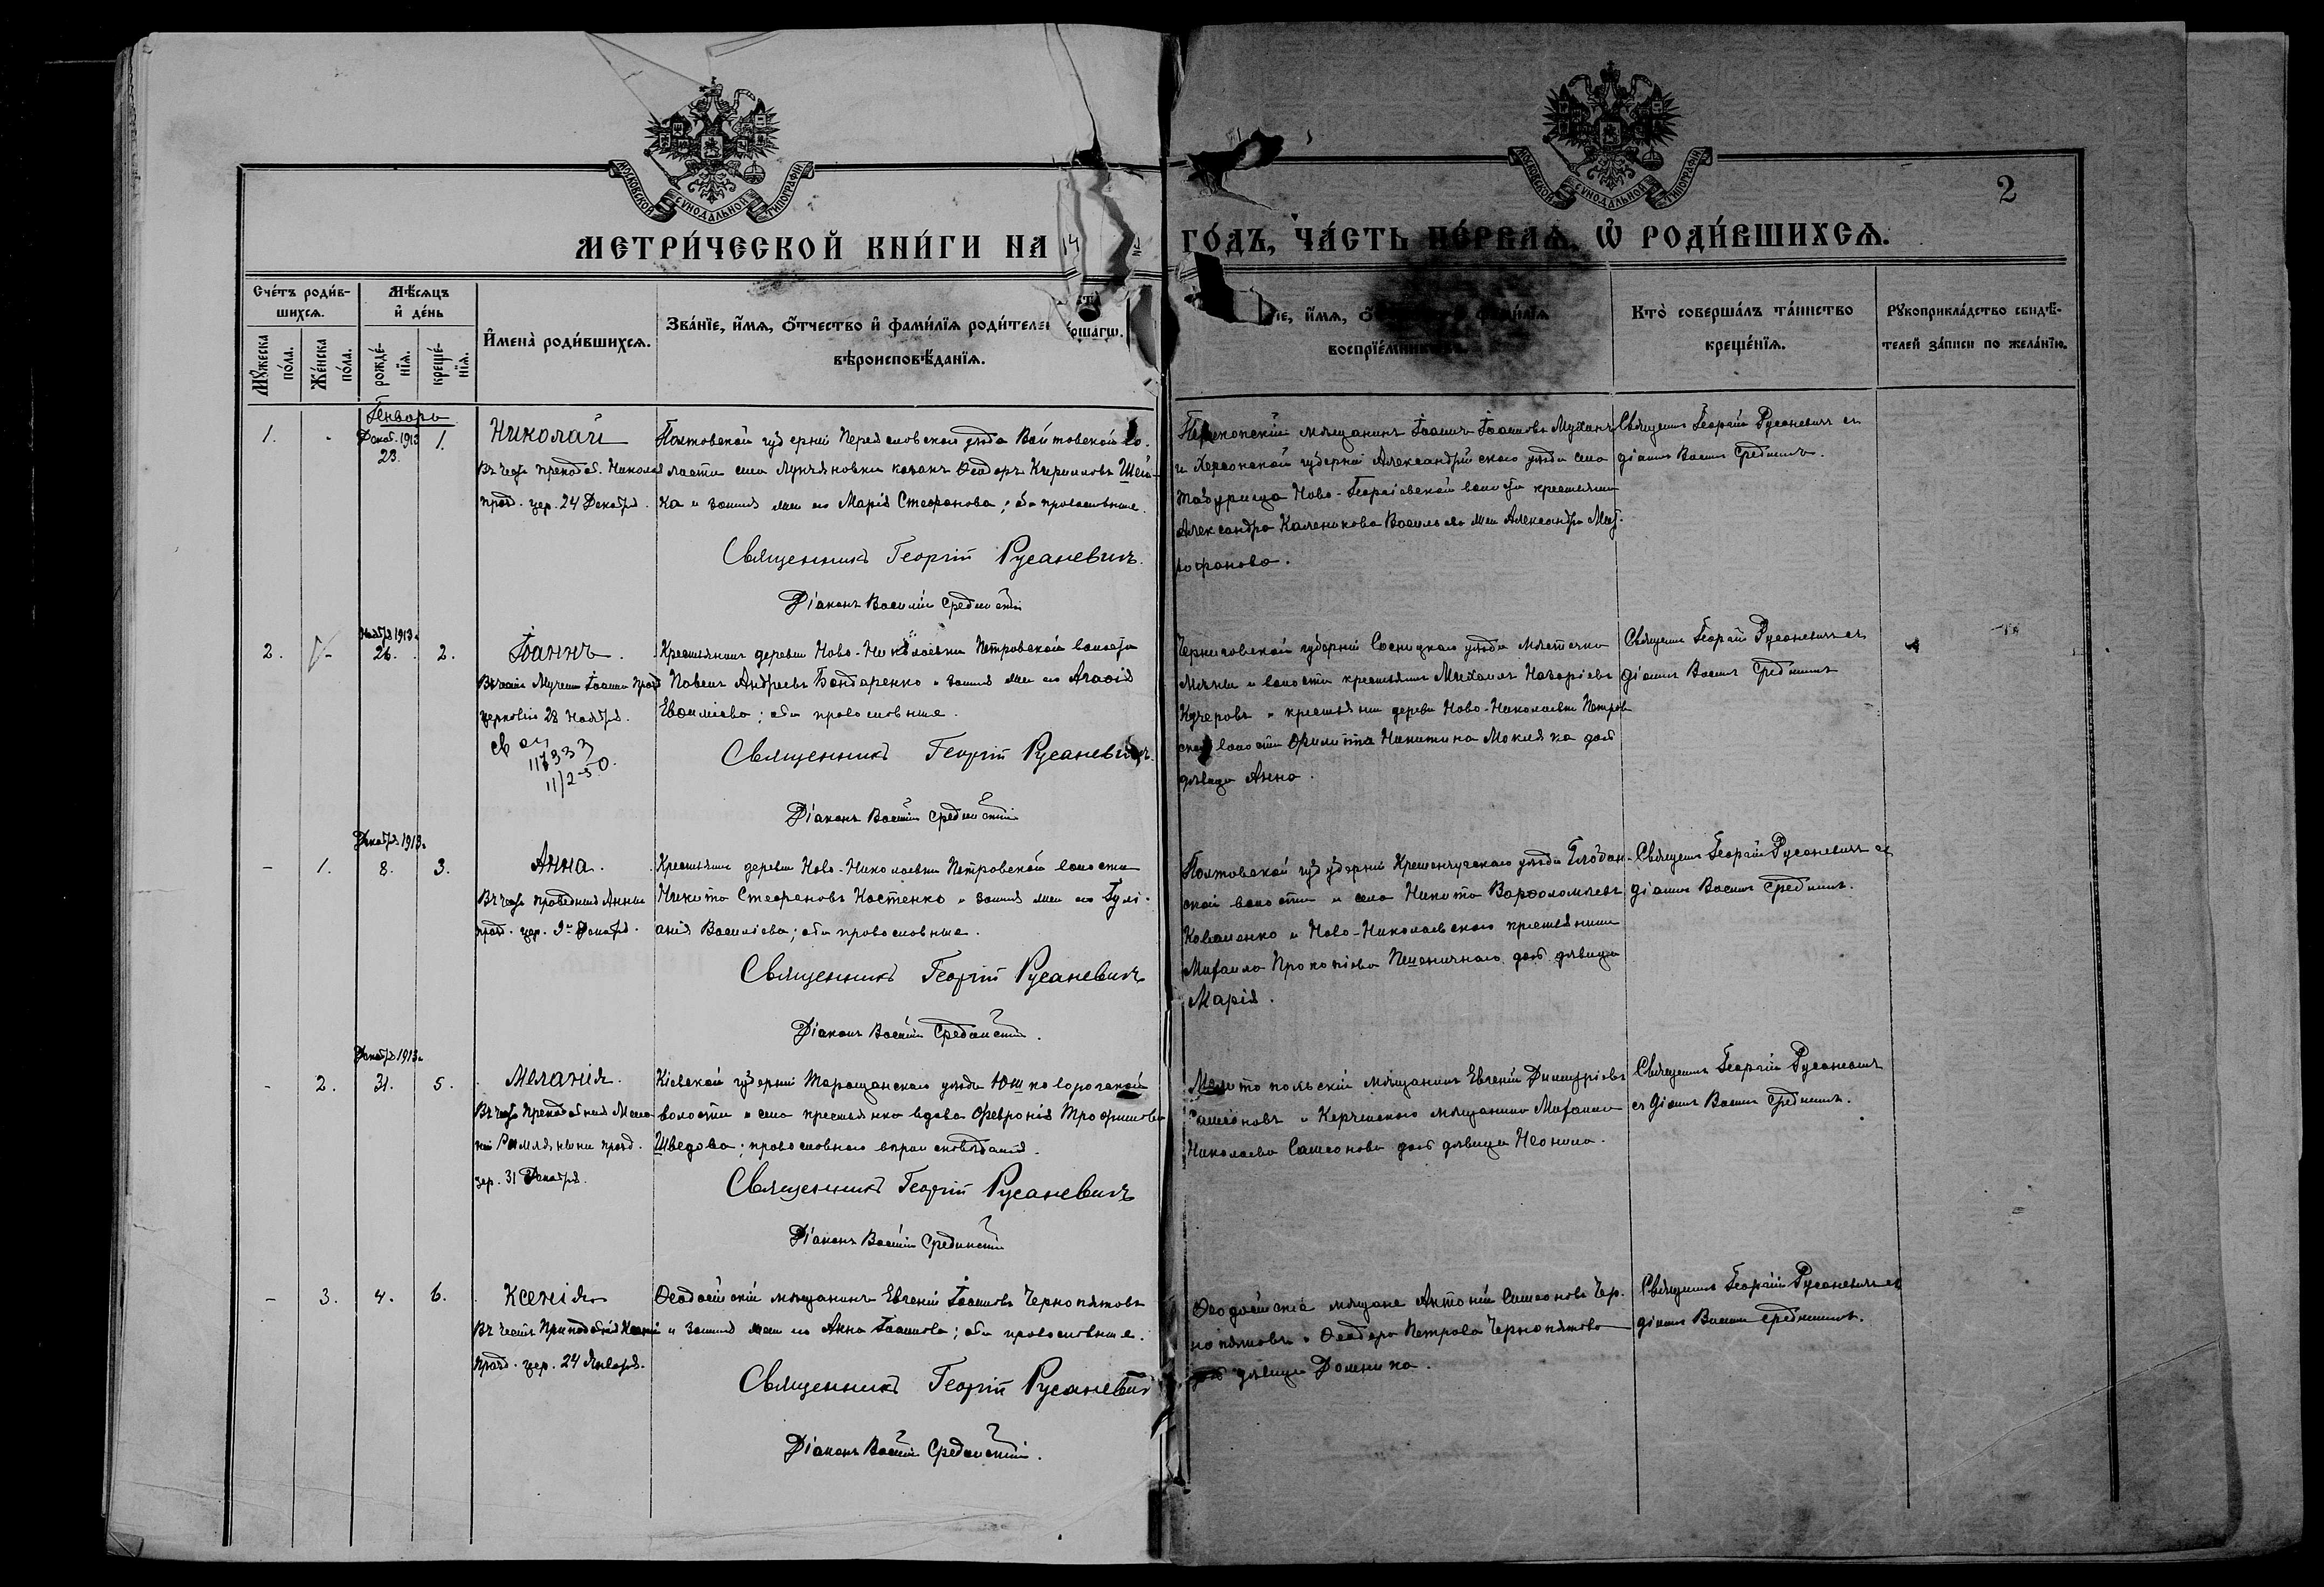 МОСКОВСКОЙ СѴНОДАЛЬНОЙ ТИПОГРАФІИ
МОСКОВСКОЙ СѴНОДАЛЬНОЙ ТИПОГРАФІИ
2
МЕТРИ́ЧЕСКОЙ КНИ́ГИ НА 14
ГО́ДЪ, ЧА́СТЬ ПЕ́РВАѦ, Ѡ҆ РОДИ́ВШИХСѦ.
Сче́тъ роди́в-
шихсѧ.
Мꙋ́жеска по́ла.
Же́нска по́ла.
Мѣ́сѧцъ
и҆ де́нь
рожде́-
нїѧ.
креще́-
нїѧ.
И҆мена̀ роди́вшихсѧ.
Зва́нїе, и҆́мѧ, ѻ҆́тчество и҆ фами́лїѧ роди́теле
вѣроисповѣ́данїѧ.
їе, и҆́мѧ,
воспрїе́мник
Кто̀ соверша́лъ та́инство
креще́нїѧ.
Рꙋкоприкла́дство свидѣ́-
телей за́писи по жела́нїю.
Генварь
1.
Декаб. 1913
23.
1.
Николай
Въ честь преподоб. Николая
празд. цер. 24 Декабря.
Полтовской губерніи Переяславского уѣзда Войтовской во-
лости села Лукъяновки казакъ Ѳеодоръ Кирилловъ Шей-
ка и законная жена его Марія Стефанова; оба православные.
Священникъ Георгій Русаневичъ.
Діаконъ Василій Срединскій
Перекопскій мѣщанинъ Іоаннъ Іоанновъ
и Херсонской губерніи Александрійского уѣзда села
Табурища Ново-Георгіевской волости крестьянина
Александра Каленикова жена Александра Мит-
рофанова.
Священникъ Георгій Русаневичъ съ
діакон. Васил. Срединским.
2.
Ноября 1913 г.
26.
2.
Іоаннъ.
Въ честь Мученика Іоанна празд.
церковію 28 Ноября.
11/2-50.
Крестьянинъ деревни Ново-Николаевки Петровской волости
Павелъ Андреевъ Бондаренко и законная жена его Агаѳія
Евѳиміева; оба православные.
Священникъ Георгій Русаневичъ.
Діаконъ Василій Срединскій
Черниговской губерніи Сосницкого уѣзда мѣстечка
Мены и волости крестьянинъ Михаилъ Назаріевъ
Кучеровъ и крестьянина деревни Ново-Николаевки Петров
ской волости Филиппа Никитина дочь
дѣвица Анна.
Священникъ Георгій Русаневичъ съ
діакон. Васил. Срединским
-
1.
Декабря 1913 г.
8.
3.
Анна.
Въ честь праведныя Анны
празд. цер. 9го Декабря.
Крестьянинъ деревни Ново-Николаевки Петровской волости
Никита Стефановъ Костенко и законная жена его Іулі-
анія Василіева; оба православные.
Священникъ Георгій Русаневичъ
Діаконъ Василій Срединскій.
Полтовской губерніи Кременчугского уѣзда
ской волости и села Никита Варѳоломѣевъ
Коваленко и Ново-Николаевского крестьянина
Михаила Прокопіева Пшеничного дочь дѣвица
Марія.
Священникъ Георгій Русаневичъ съ
діакон. Васил. Срединским.
-
2.
Декабря 1913 г.
31.
5.
Меланія.
Въ честь Преподобныя Мела-
ніи Римляныни празд.
цер. 31 Декабря.
Кіевской губерніи Таращанского уѣзда
волости и села крестьянка вдова Февронія Трофимова
Шведова; православного вѣроисповѣданія.
Священникъ Георгій Русаневичъ
Діаконъ Василій Срединскій
Мелитопольскій мѣщанинъ Евгеній Димитріевъ
и Керченского мѣщанина Михаила
Николаева Самсонова дочь дѣвица Неонила.
Священникъ Георгій Русаневичъ
съ діакон. Васил. Срединским.
-
3.
4.
6.
Ксенія
Въ честь Преподобныя Ксеніи
празд. цер. 24 Января.
Ѳеодосійскій мѣщанинъ Евгеній Іоанновъ Чернопятовъ
и законная жена его Анна Іоаннова; оба православные.
Священникъ Георгій Русаневичъ
Діаконъ Василій Срединскій.
Ѳеодосійскіе мѣщане Антоній Симеоновъ Чер-
нопятовъ и Ѳеодора Петрова Чернопятова
дѣвица Домника.
Священникъ Георгій Русаневичъ съ
діакон. Васил. Срединским.